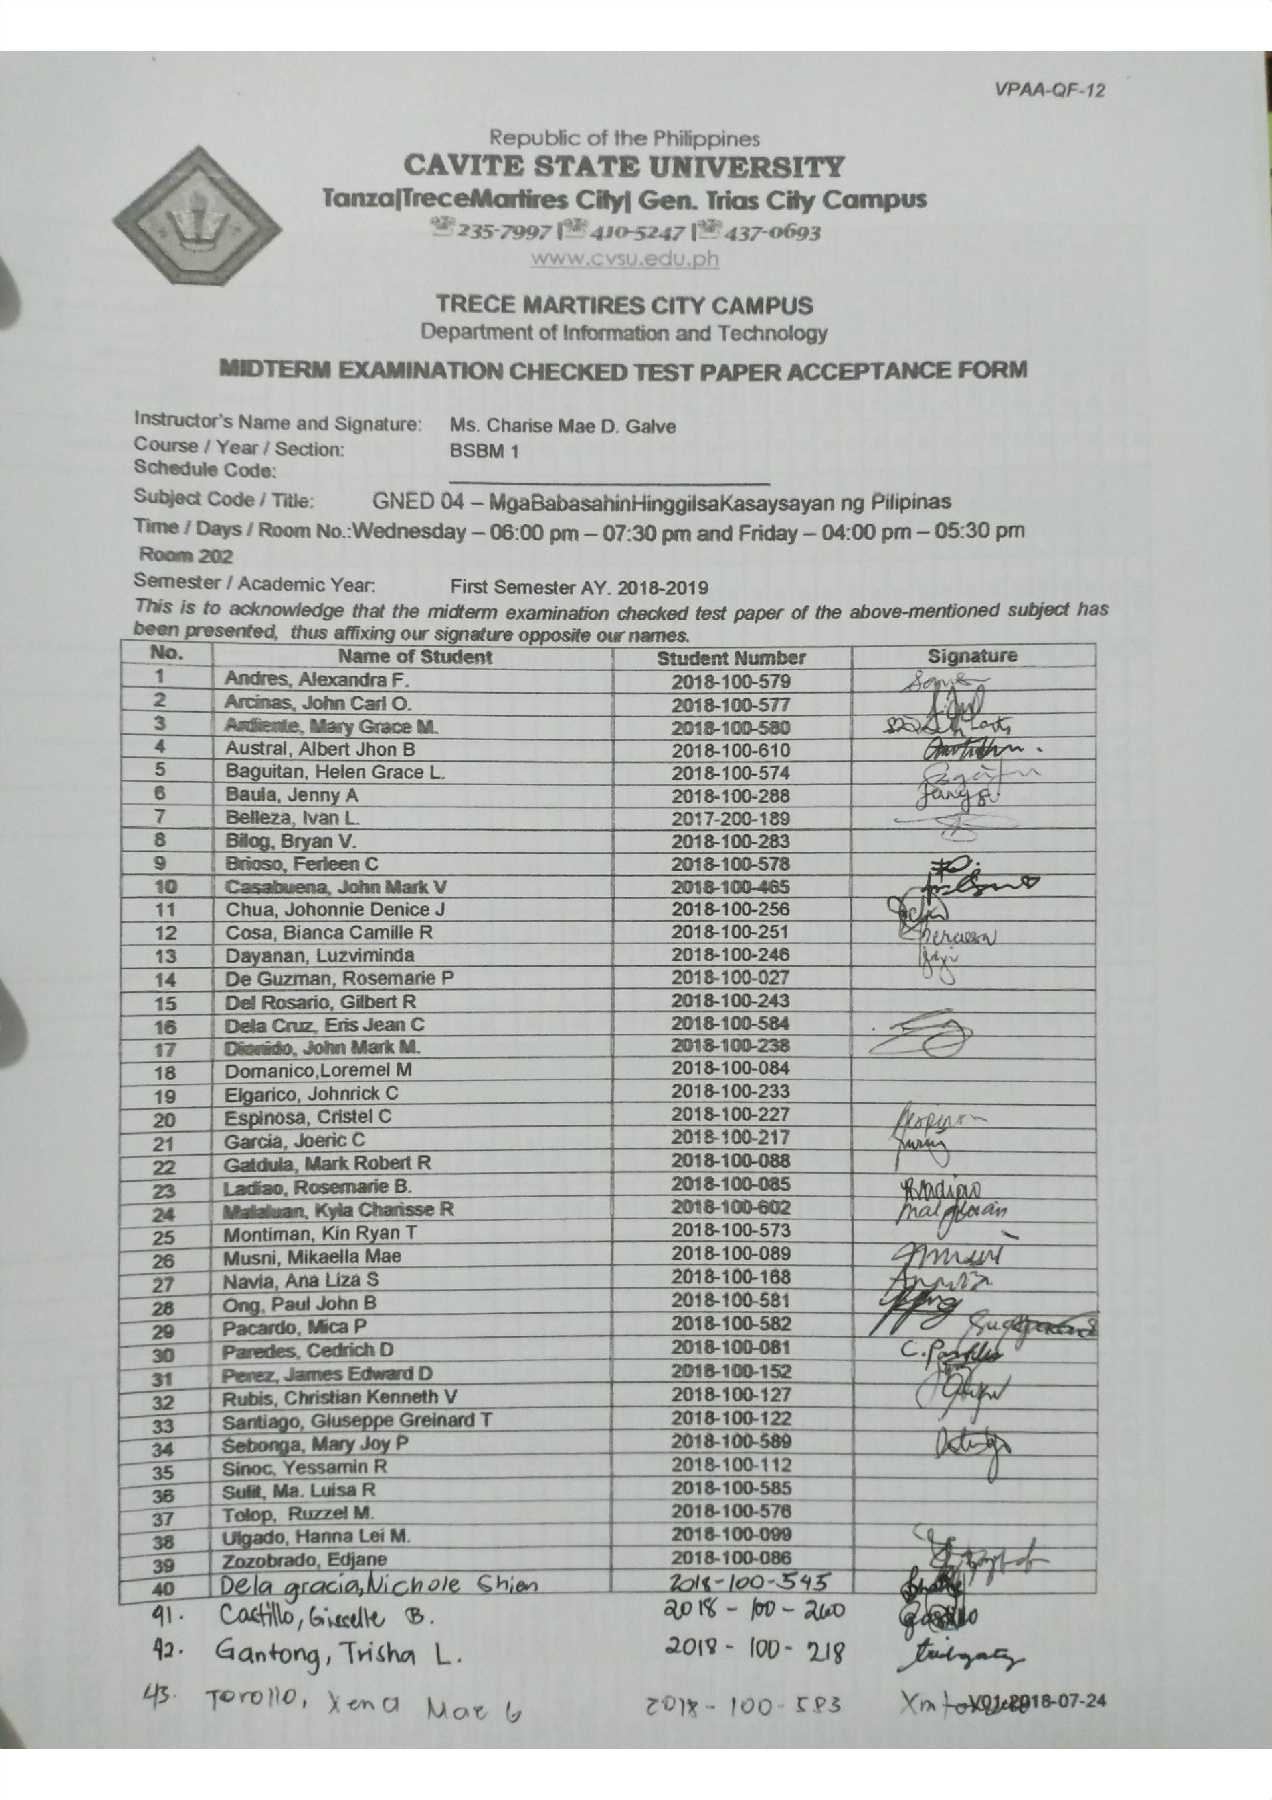 VPAA-QF-12
Republic of the Philippines
CAVITE STATE UNIVERSITY
Tanza|TreceMartires City| Gen. Trias City Campus
☏235-7997 |☏410-5247 |☏437-0693
www.cvsu.edu.ph
TRECE MARTIRES CITY CAMPUS
Department of Information and Technology
MIDTERM EXAMINATION CHECKED TEST PAPER ACCEPTANCE FORM
Instructor's Name and Signature: Ms. Charise Mae D. Galve
Course / Year / Section: BSBM 1
Schedule Code:
Subject Code / Title: GNED 04 – MgaBabasahinHinggilsaKasaysayan ng Pilipinas
Time / Days / Room No.:Wednesday – 06:00 pm – 07:30 pm and Friday – 04:00 pm – 05:30 pm
Room 202
Semester / Academic Year: First Semester AY. 2018-2019
This is to acknowledge that the midterm examination checked test paper of the above-mentioned subject has
been presented, thus affixing our signature opposite our names.
No. Name of Student Student Number Signature
1 Andres, Alexandra F. 2018-100-579
2 Arcinas, John Carl O. 2018-100-577
3 Ardiente, Mary Grace M. 2018-100-580
4 Austral, Albert Jhon B 2018-100-610
5 Baguitan, Helen Grace L. 2018-100-574
6 Baula, Jenny A 2018-100-288
7 Belleza, Ivan L. 2017-200-189
8 Bilog, Bryan V. 2018-100-283
9 Brioso, Ferleen C 2018-100-578
10 Casabuena, John Mark V 2018-100-465
11 Chua, Johonnie Denice J 2018-100-256
12 Cosa, Bianca Camille R 2018-100-251
13 Dayanan, Luzviminda 2018-100-246
14 De Guzman, Rosemarie P 2018-100-027
15 Del Rosario, Gilbert R 2018-100-243
16 Dela Cruz, Eris Jean C 2018-100-584
17 Dionido, John Mark M. 2018-100-238
18 Domanico,Loremel M 2018-100-084
19 Elgarico, Johnrick C 2018-100-233
20 Espinosa, Cristel C 2018-100-227
21 Garcia, Joeric C 2018-100-217
22 Galdula, Mark Robert R 2018-100-088
23 Ladiao, Rosemarie B. 2018-100-085
24 Malaluan, Kyla Charisse R 2018-100-602
25 Montiman, Kin Ryan T 2018-100-573
26 Musni, Mikaella Mae 2018-100-089
27 Navia, Ana Liza S 2018-100-168
28 Ong, Paul John B 2018-100-581
29 Pacardo, Mica P 2018-100-582
30 Paredes, Cedrich D 2018-100-081
31 Perez, James Edward D 2018-100-152
32 Rubis, Christian Kenneth V 2018-100-127
33 Santiago, Giuseppe Greinard T 2018-100-122
34 Sebonga, Mary Joy P 2018-100-589
35 Sinoc, Yessamin R 2018-100-112
36 Sulit, Ma. Luisa R 2018-100-585
37 Tolop, Ruzzel M. 2018-100-576
38 Ulgado, Hanna Lei M. 2018-100-099
39 Zozobrado, Edjane 2018-100-086
40 Dela gracia, Nichole Shien 2018-100-545
41. Castillo, Gieselle B. 2018-100-260
42. Gantong, Trisha L. 2018-100-218
43. Torollo, Xena Mae G 2018-100-583
V01-2018-07-24